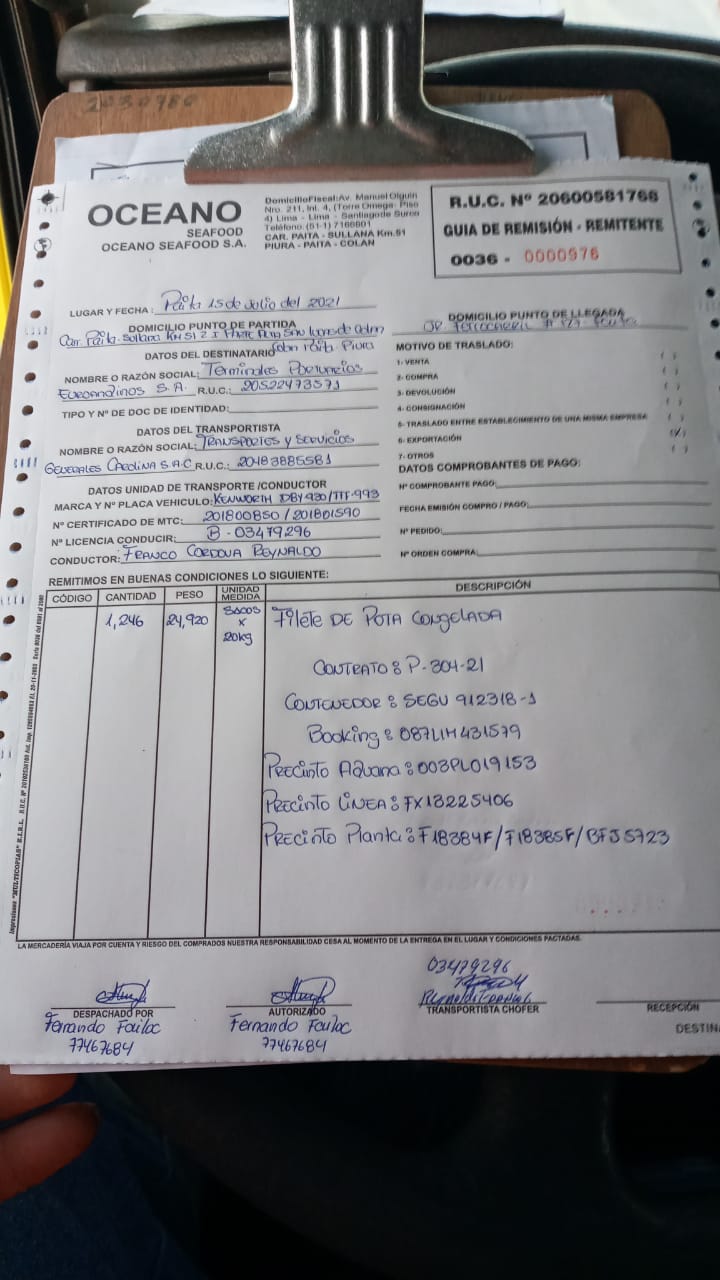 2030980
OCEANO
SEAFOOD
OCEANO SEAFOOD S.A.
DomicilioFiscal:Av. Manuel Olguin
Nro. 211, Int. 4, (Torre Omega- Piso
4) Lima - Lima - Santiagode Surco
Teléfono.(51-1) 7166601
CAR. PAITA - SULLANA Km.51
PIURA - PAITA - COLAN
R.U.C. Nº 20600581768
GUIA DE REMISIÓN - REMITENTE
0036 - 0000976
LUGAR Y FECHA : Paita 15 de Julio del 2021
DOMICILIO PUNTO DE PARTIDA
Carr. Paita-Sullana KM 51 Colan Paita Piura
DOMICILIO PUNTO DE LLEGADA
DATOS DEL DESTINATARIO
NOMBRE O RAZÓN SOCIAL: Terminales Portuarios
Euroandinos S.A. R.U.C.: 20522473571
TIPO Y Nº DE DOC DE IDENTIDAD:
DATOS DEL TRANSPORTISTA
NOMBRE O RAZÓN SOCIAL: TRANSPORTES y Servicios
Generales Carolina S.A.C R.U.C.: 20483885581
DATOS UNIDAD DE TRANSPORTE /CONDUCTOR
MARCA Y Nº PLACA VEHICULO: KENWORTH
Nº CERTIFICADO DE MTC: 201800850 / 201801590
Nº LICENCIA CONDUCIR: B - 03479296
CONDUCTOR: FRANCO CORDOVA REYNALDO
MOTIVO DE TRASLADO:
1- VENTA ( )
2- COMPRA ( )
3- DEVOLUCIÓN ( )
4- CONSIGNACIÓN ( )
5- TRASLADO ENTRE ESTABLECIMIENTO DE UNA MISMA EMPRESA ( )
6- EXPORTACIÓN (X)
7- OTROS ( )
DATOS COMPROBANTES DE PAGO:
Nº COMPROBANTE PAGO:
FECHA EMISIÓN COMPRO / PAGO:
Nº PEDIDO:
Nº ORDEN COMPRA:
REMITIMOS EN BUENAS CONDICIONES LO SIGUIENTE:
CÓDIGO CANTIDAD PESO UNIDAD MEDIDA DESCRIPCIÓN
1,246 24,920 SACOS x 20kg Filete DE POTA CONGELADA
CONTRATO : P-304-21
CONTENEDOR : SEGU 912318-1
Booking : 087LIM431579
Precinto Aduana : 003PL019153
Precinto Línea : FX13225406
Precinto Planta : F18384F/F18385F/BFJ5723
LA MERCADERÍA VIAJA POR CUENTA Y RIESGO DEL COMPRADOS NUESTRA RESPONSABILIDAD CESA AL MOMENTO DE LA ENTREGA EN EL LUGAR Y CONDICIONES PACTADAS.
DESPACHADO POR
Fernando
77467684
AUTORIZADO
Fernando
77467684
03479296
TRANSPORTISTA CHOFER
RECEPCIÓN
DESTINA